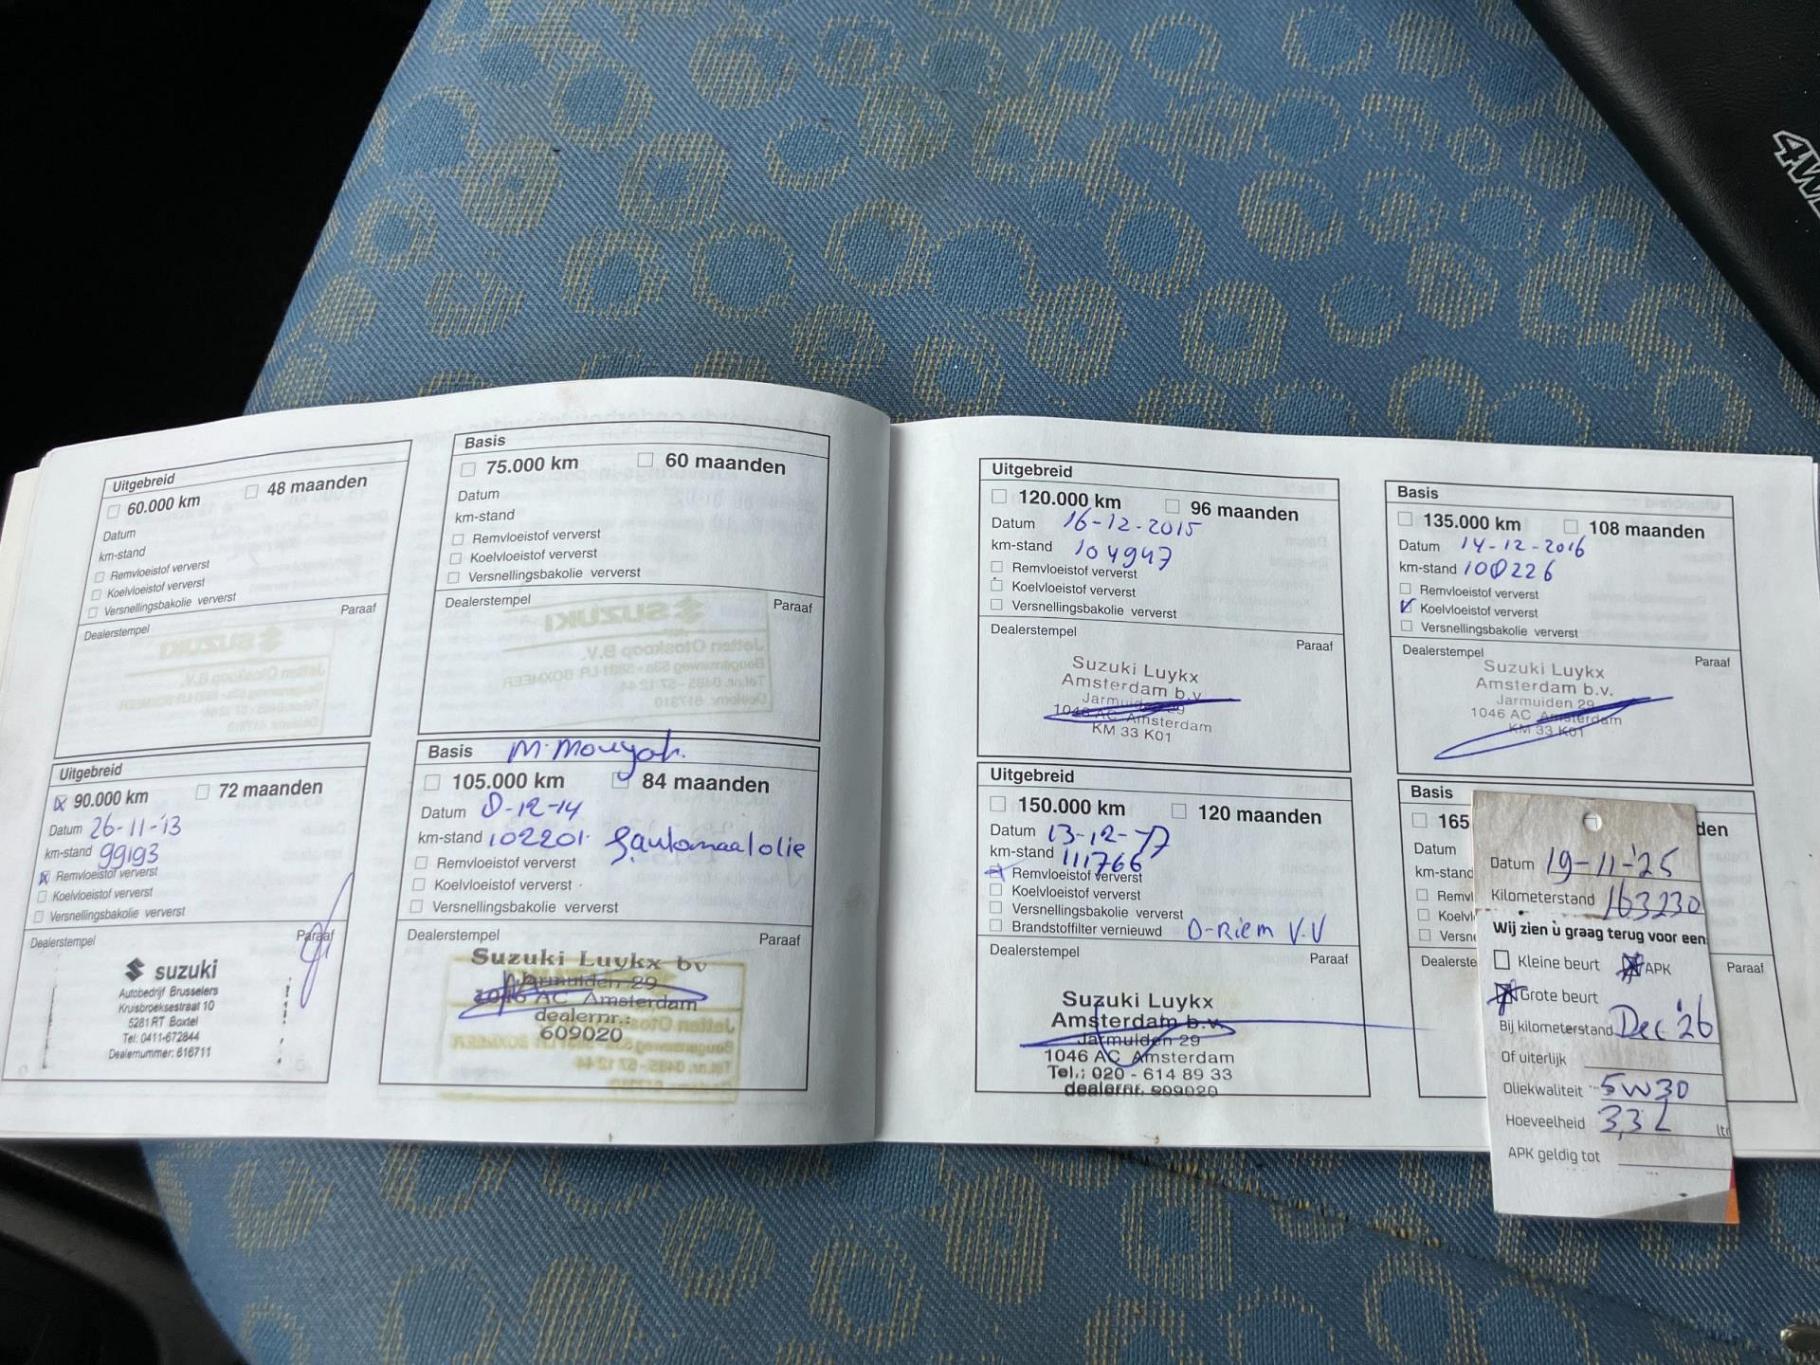 Uitgebreid
60.000 km 48 maanden
Datum
km-stand
Remvloeistof ververst
Koelvloeistof ververst
Versnellingsbakolie ververst
Dealerstempel Paraaf
Basis
75.000 km 60 maanden
Datum
km-stand
Remvloeistof ververst
Koelvloeistof ververst
Versnellingsbakolie ververst
Dealerstempel Paraaf
Uitgebreid
90.000 km 72 maanden
Datum 26-11-'13
km-stand 99193
Remvloeistof ververst
Koelvloeistof ververst
Versnellingsbakolie ververst
Dealerstempel Paraaf
SUZUKI
Autobedrijf Brusselers
Kruisbroeksestraat 10
5281 RT Boxtel
Tel: 0411-672844
Dealernummer: 616711
Basis
105.000 km 84 maanden
Datum 8-12-14
km-stand 102201
Remvloeistof ververst
Koelvloeistof ververst
Versnellingsbakolie ververst
Dealerstempel Paraaf
Suzuki Luykx bv
Jarmuiden 29
1046 AC Amsterdam
dealernr.:
609020
Uitgebreid
120.000 km 96 maanden
Datum 16-12-2015
km-stand 104947
Remvloeistof ververst
Koelvloeistof ververst
Versnellingsbakolie ververst
Dealerstempel Paraaf
Suzuki Luykx
Amsterdam b.v.
Jarmuiden 29
1046 AC Amsterdam
KM 33 K01
Basis
135.000 km 108 maanden
Datum 14-12-2016
km-stand 108226
Remvloeistof ververst
Koelvloeistof ververst
Versnellingsbakolie ververst
Dealerstempel Paraaf
Suzuki Luykx
Amsterdam b.v.
Jarmuiden 29
1046 AC Amsterdam
KM 33 K01
Uitgebreid
150.000 km 120 maanden
Datum 13-12-17
km-stand 111766
Remvloeistof ververst
Koelvloeistof ververst
Versnellingsbakolie ververst
Brandstoffilter vernieuwd D-Riem V.V
Dealerstempel Paraaf
Suzuki Luykx
Amsterdam b.v.
Jarmuiden 29
1046 AC Amsterdam
Tel.: 020 - 614 89 33
dealernr. 609020
Basis
165
den
Datum
km-stand
Remvl
Koelvl
Versne
Dealerste
Paraaf
Datum 19-11-'25
Kilometerstand 163230
Wij zien u graag terug voor een
Kleine beurt APK
Grote beurt
Bij kilometerstand Dec '26
Of uiterlijk
Oliekwaliteit 5W30
Hoeveelheid 3,3 L ltr
APK geldig tot